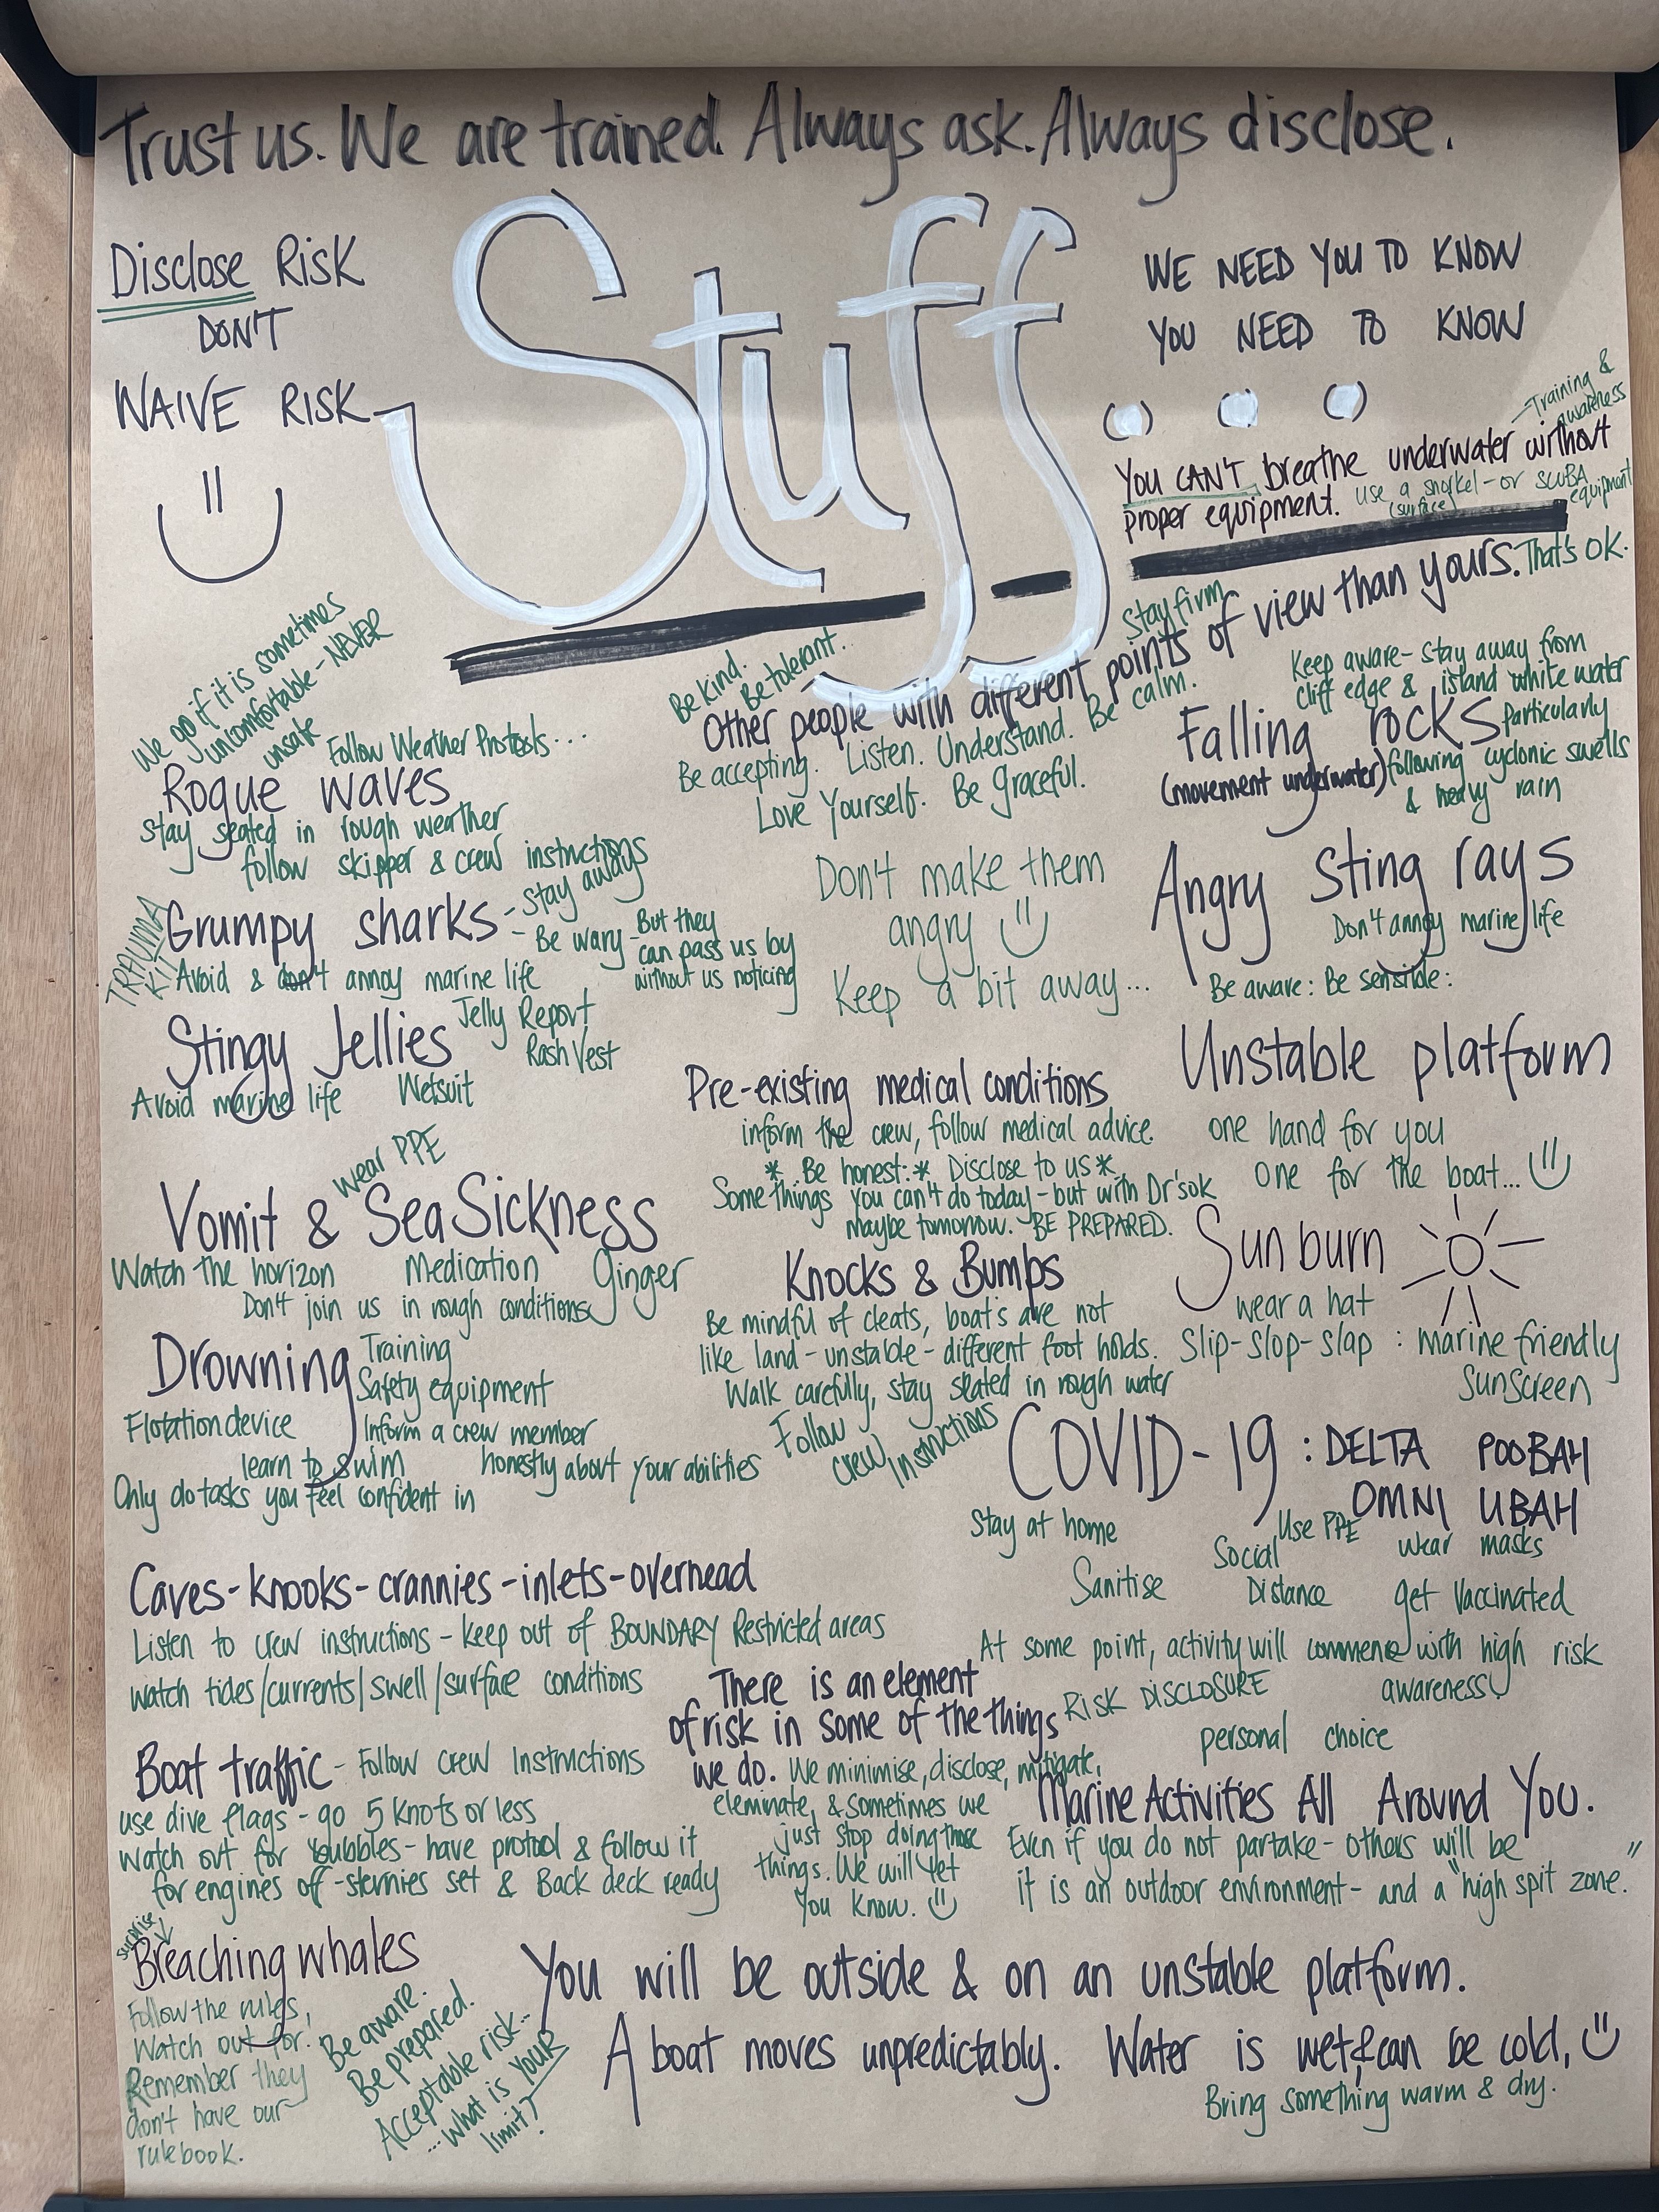 Trust us. We are trained. Always ask. Always disclose.
Disclose RISK
DON'T
NAIVE RISK
Stuff
WE NEED YOU TO KNOW
YOU NEED TO KNOW
...
Training &
awareness
You CAN'T breathe underwater without
proper equipment. use a snorkel - or SCUBA
(surface) equipment
We go if it is sometimes
uncomfortable - NEVER
unsafe
Follow Weather Protocols...
Rogue waves
Stay seated in rough weather
follow skipper & crew instructions
Be kind.
Be tolerant.
Stay firm
Other people with different points of view than yours. That's OK.
Be accepting. Listen. Understand. Be calm.
Love Yourself. Be graceful.
Don't make them
angry
Keep a bit away...
Keep aware - stay away from
cliff edge & island white water
Falling rocks particularly
(movement underwater) following cyclonic swells
& heavy rain
TRAUMA
KIT
Grumpy sharks - Stay away
- Be wary - But they
can pass us by
without us noticing
Avoid & don't annoy marine life
Angry Sting rays
Don't annoy marine life
Be aware: Be sensible:
Stingy Jellies Jelly Report
Rash Vest
Avoid marine life Wetsuit
Pre-existing medical conditions
inform the crew, follow medical advice.
* Be honest: * Disclose to us *
Some things you can't do today - but with Dr's ok
maybe tomorrow. BE PREPARED.
Unstable platform
one hand for you
one for the boat...
wear PPE
Vomit & SeaSickness
Watch the horizon Medication Ginger
Don't join us in rough conditions
Knocks & Bumps
Be mindful of cleats, boat's are not
like land - unstable - different foot holds.
Walk carefully, stay seated in rough water
Follow
crew instructions
Sun burn
wear a hat
Slip-slop-slap : marine friendly
Sunscreen
Drowning Training
Safety equipment
Flotation device Inform a crew member
learn to swim honestly about your abilities
Only do tasks you feel confident in
COVID-19 : DELTA POOBAH
OMNI UBAH
Stay at home Use PPE wear masks
Sanitise Social
Distance get vaccinated
At some point, activity will commence with high risk
RISK DISCLOSURE awareness
personal choice
Caves - knooks - crannies - inlets - overhead
Listen to crew instructions - keep out of BOUNDARY Restricted areas
watch tides/currents/swell/surface conditions
There is an element
of risk in some of the things
we do. We minimise, disclose, mitigate,
eleminate, & sometimes we
just stop doing those
things. We will let
you know.
Boat traffic - Follow crew Instructions
use dive flags - go 5 knots or less
watch out for bubbles - have protocol & follow it
for engines off - sternies set & Back deck ready
Marine Activities All Around You.
Even if you do not partake - others will be
it is an outdoor environment - and a "high spit zone."
surprise
Breaching whales
Follow the rules,
Watch out for.
Remember they
don't have our
rulebook.
Be aware.
Be prepared.
Acceptable risk...
...what is YOUR
limit?
You will be outside & on an unstable platform.
A boat moves unpredictably. Water is wet & can be cold,
Bring something warm & dry.